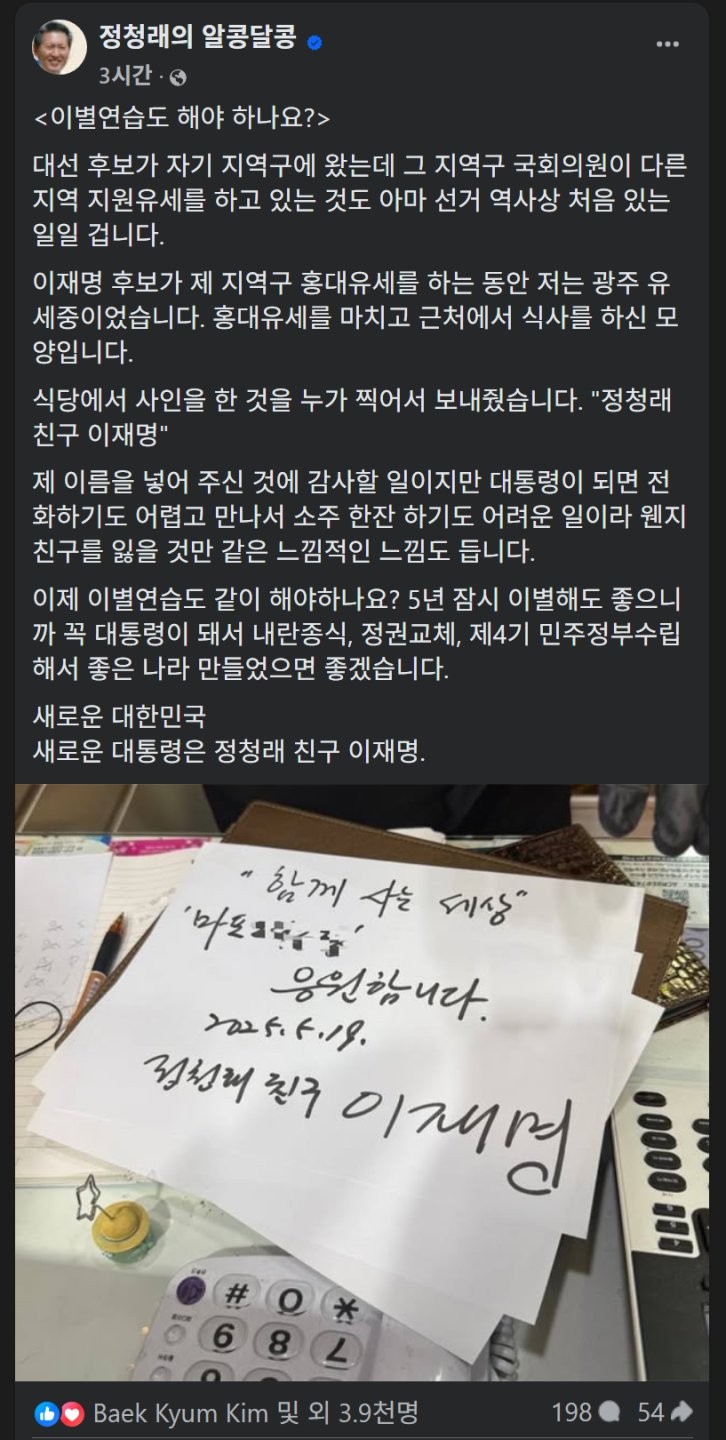 정청래의 알콩달콩
3시간
<이별연습도 해야 하나요?>
대선 후보가 자기 지역구에 왔는데 그 지역구 국회의원이 다른
지역 지원유세를 하고 있는 것도 아마 선거 역사상 처음 있는
일일 겁니다.
이재명 후보가 제 지역구 홍대유세를 하는 동안 저는 광주 유
세중이었습니다. 홍대유세를 마치고 근처에서 식사를 하신 모
양입니다.
식당에서 사인을 한 것을 누가 찍어서 보내줬습니다. "정청래
친구 이재명"
제 이름을 넣어 주신 것에 감사할 일이지만 대통령이 되면 전
화하기도 어렵고 만나서 소주 한잔 하기도 어려운 일이라 웬지
친구를 잃을 것만 같은 느낌적인 느낌도 듭니다.
이제 이별연습도 같이 해야하나요? 5년 잠시 이별해도 좋으니
까 꼭 대통령이 돼서 내란종식, 정권교체, 제4기 민주정부수립
해서 좋은 나라 만들었으면 좋겠습니다.
새로운 대한민국
새로운 대통령은 정청래 친구 이재명.
"함께 사는 세상"
'마포
응원합니다.
2025.5.19.
정청래 친구 이재명
# 0 *
9 8 7
Baek Kyum Kim 및 외 3.9천명
198 54